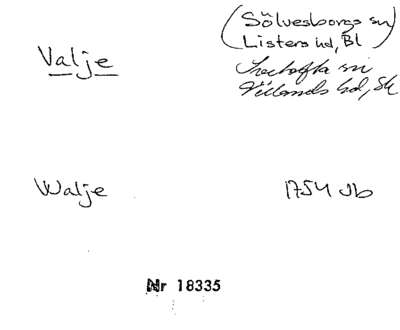 (Sölvesborgs sn)
Listers hd, Bl
Valje
sn
Villands hd, Sk
Walje 1754 Jb
Nr 18335